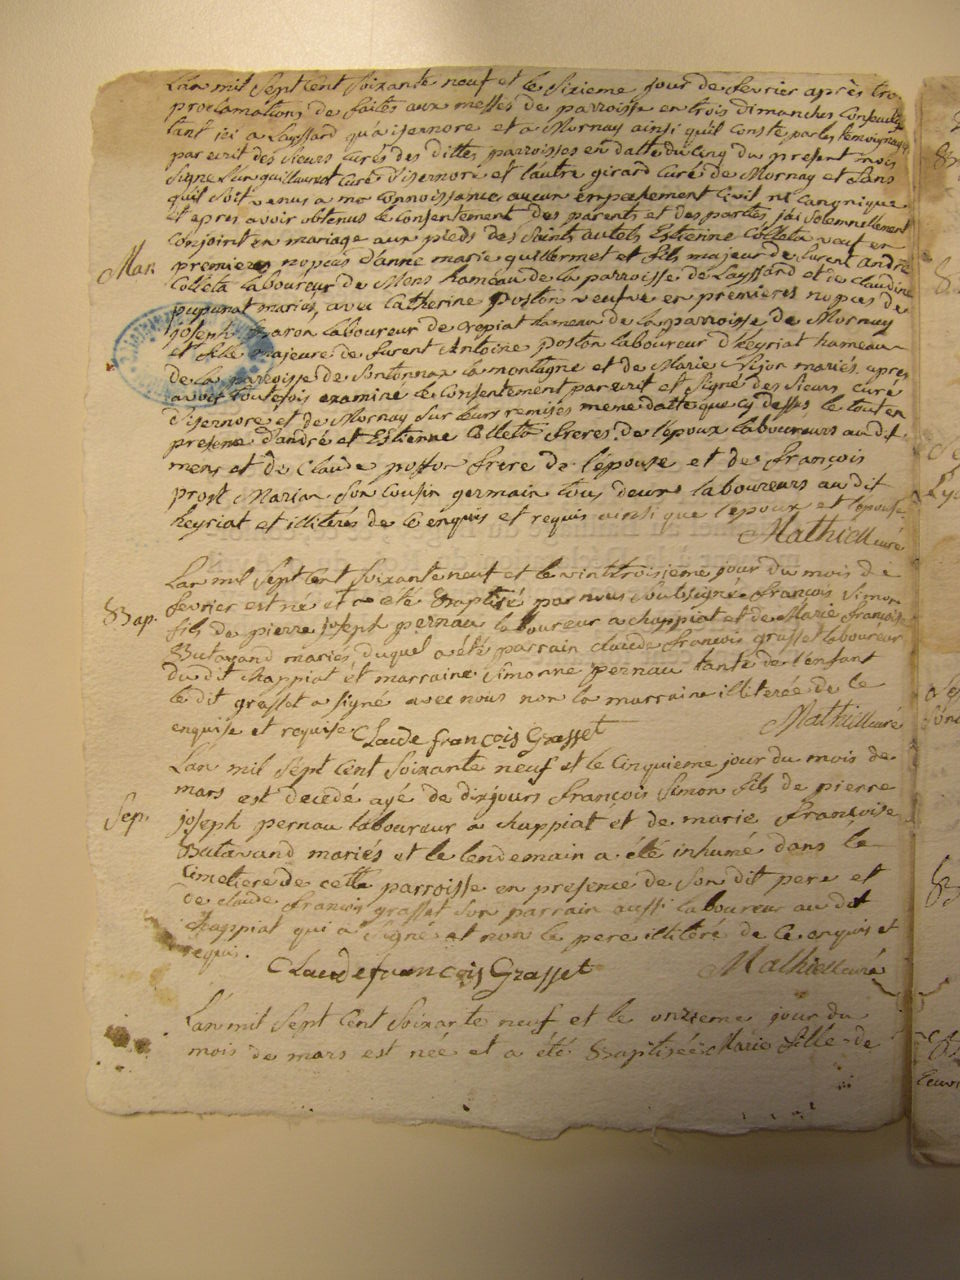 L'an mil sept cent soixante neuf et le sixieme jour de fevrier après trois
proclamations de faites aux messes de parroisse en trois dimanches consecutifs
tant ici a Layssard qu'a isernore et a Mornay ainsi qu'il conste par les temoignages
par ecrit des sieurs curés des dittes parroisses en datte du cinq du present mois
signé l'un guillermet curé d'isernore et l'autre girard curé de Mornay et sans
qu'il soit venus a ma connoissance aucun empechement civil ni canonique
et apres avoir obtenus le consentement des parents et des parties j'ai solemnellement
conjoint en mariage aux pieds des saints autels Estienne Colleta veuf en
Mar. premieres nopces d'anne marie guillermet et fils majeur de furent andré
Colleta laboureur de Mens hameau de la parroisse de Layssard et de claudine
pupunat mariés, avec Catherine poston veufve en premieres nopces de
joseph laboureur de cropiat hameau de la parroisse de Mornay
et fille majeure de furent Antoine poston laboureur d'heyriat hameau
de la parroisse de Sontonnax la montagne et de Marie mariés, apres
avoir toutefois examiné le consentement par ecrit et signé des sieurs curé
d'isernore et de Mornay sur leurs remises meme datte que cy dessus le tout en
presence d'andré et Estienne Colleta freres de l'epoux laboureurs au dit
mens et de Claude poston frere de l'epouse et de françois
prost Marian son cousin germain tous deux laboureurs au dit
heyriat et illiterés de ce enquis et requis ainsi que l'epoux et l'epouse
Mathieu curé
L'an mil sept cent soixante neuf et le vintroisieme jour du mois de
Bap. fevrier est né et a eté Baptisé par nous soussigné françois simon
fils de pierre joseph pernau laboureur a chappiat et de Marie françoise
Butavand mariés duquel a été parrain claude françois grasset laboureur
du dit chappiat et marraine simonne pernau tante de l'enfant
le dit grasset a signé avec nous non la marraine illiterée de ce
enquise et requise Claude françois Grasset Mathieu curé
L'an mil sept cent soixante neuf et le cinquieme jour du mois de
mars est decedé agé de dix jours françois simon fils de pierre
Sep. joseph pernau laboureur a chappiat et de marie françoise
Butavand mariés et le lendemain a été inhumé dans le
cimetiere de cette parroisse en presence de son dit pere et
de claude françois grasset son parrain aussi laboureur au dit
chappiat qui a signé et non le pere illiteré de ce enquis et
requis. Claude françois Grasset Mathieu curé
L'an mil sept cent soixante neuf et le onzieme jour du
mois de mars est née et a été Baptisée Marie fille de